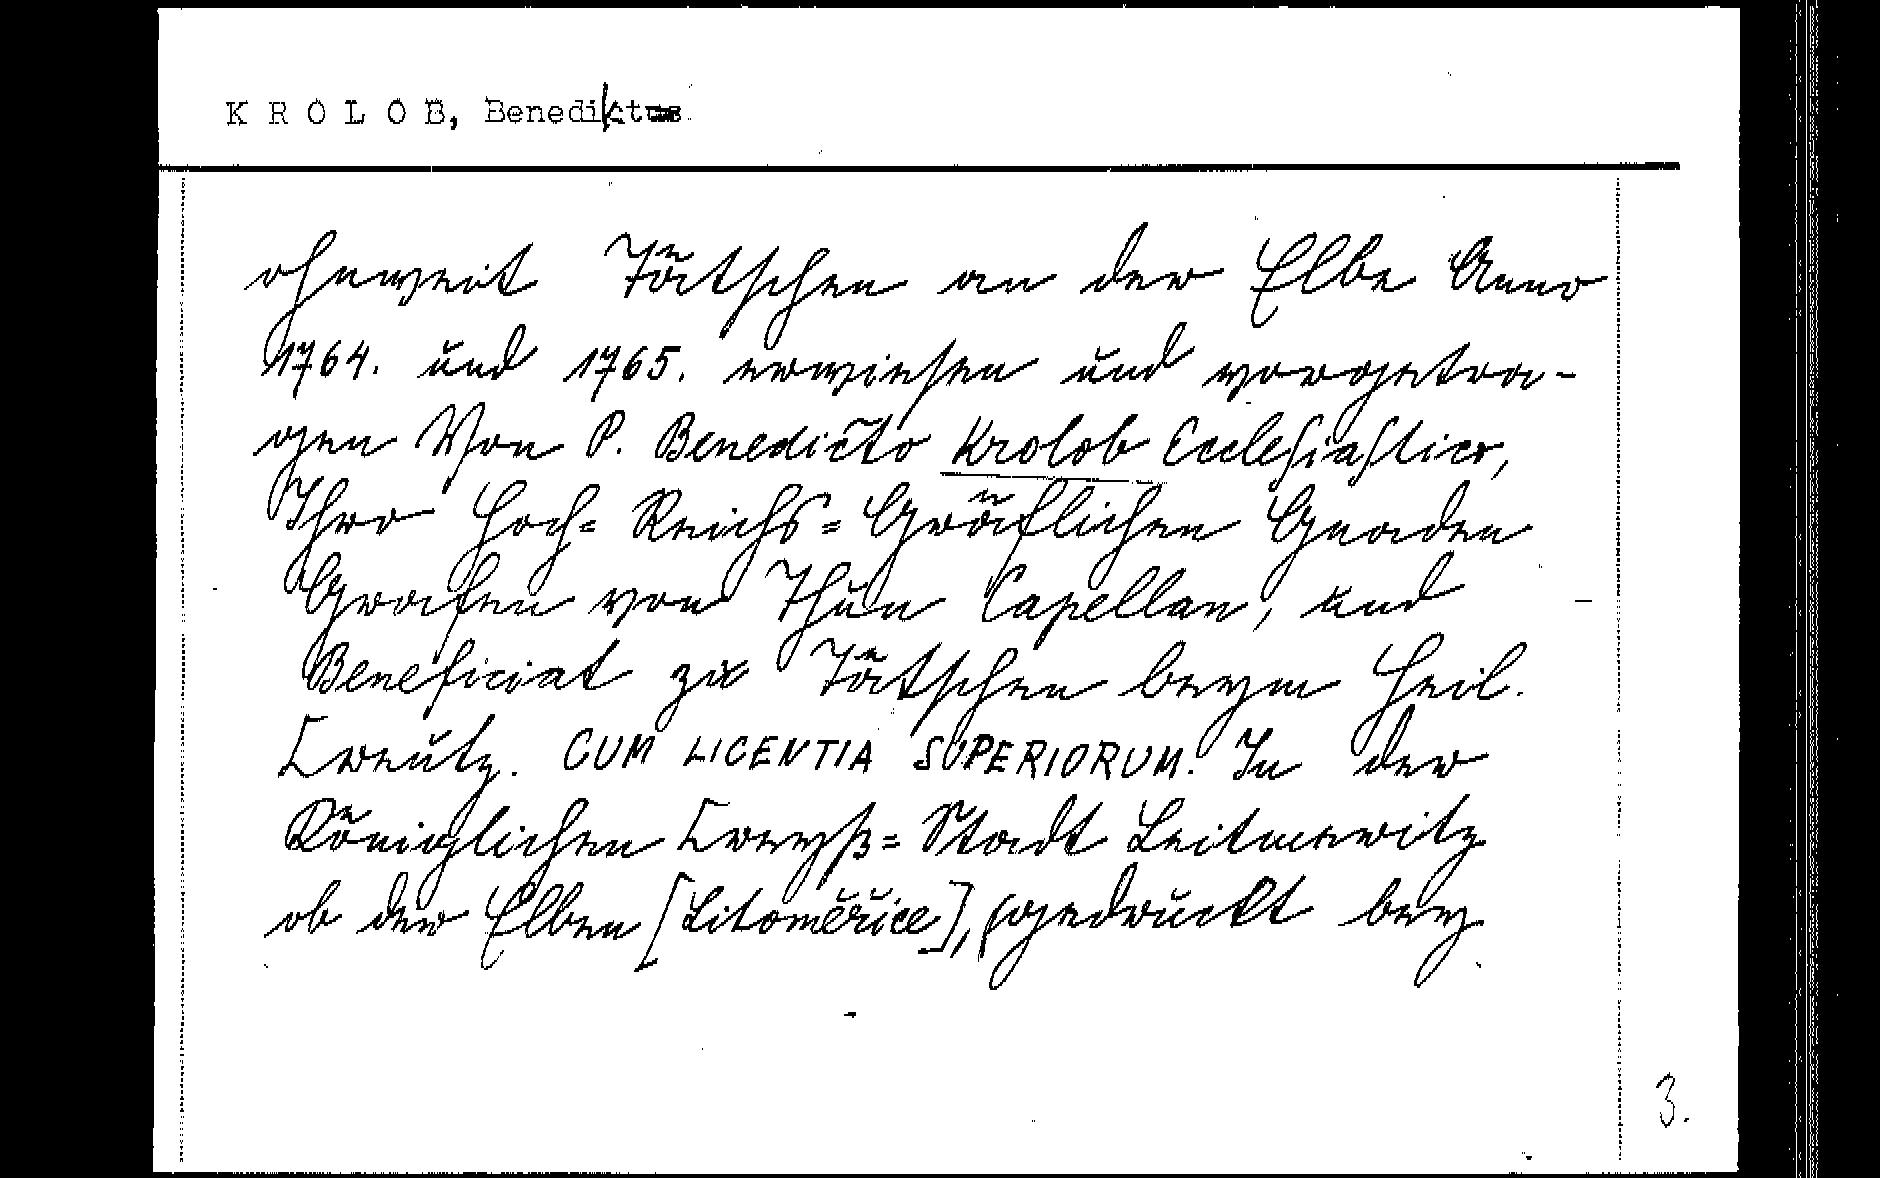 K R O L O B, Benedikt
ohnweit Tätschen an der Elbe Anno
1764. und 1765. erwiesen und vorgetra-
gen Von P. Benedicto Krolob Ecclesiastico,
Ihro Hoch= Reichs= Gräflichen Gnaden
Grafen von Thun Capellan, und
Beneficiat zu Tätschen beym Heil.
Creutz. CUM LICENTIA SUPERIORUM. In der
Königlichen Creyß= Stadt Leitmeritz
ob der Elben [Litoměřice], gedruckt bey
3.